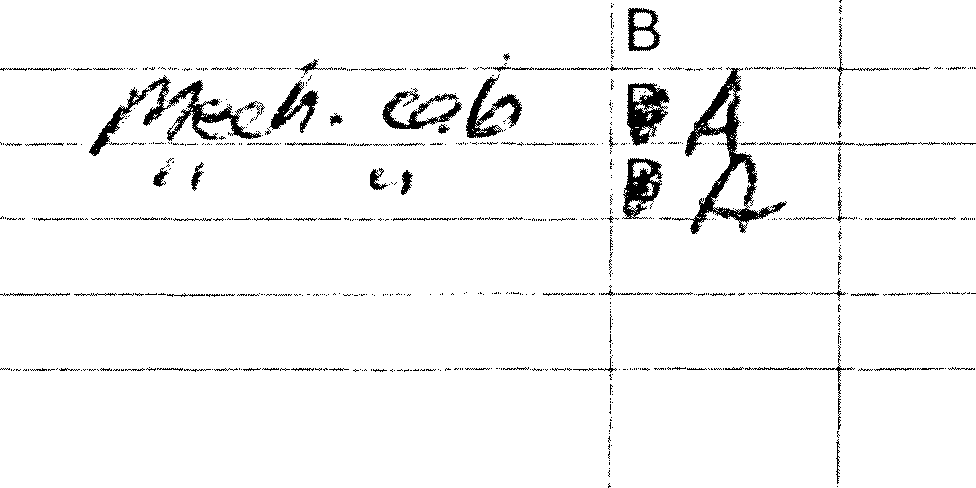 B
Mech. eq.b B A
" " B A